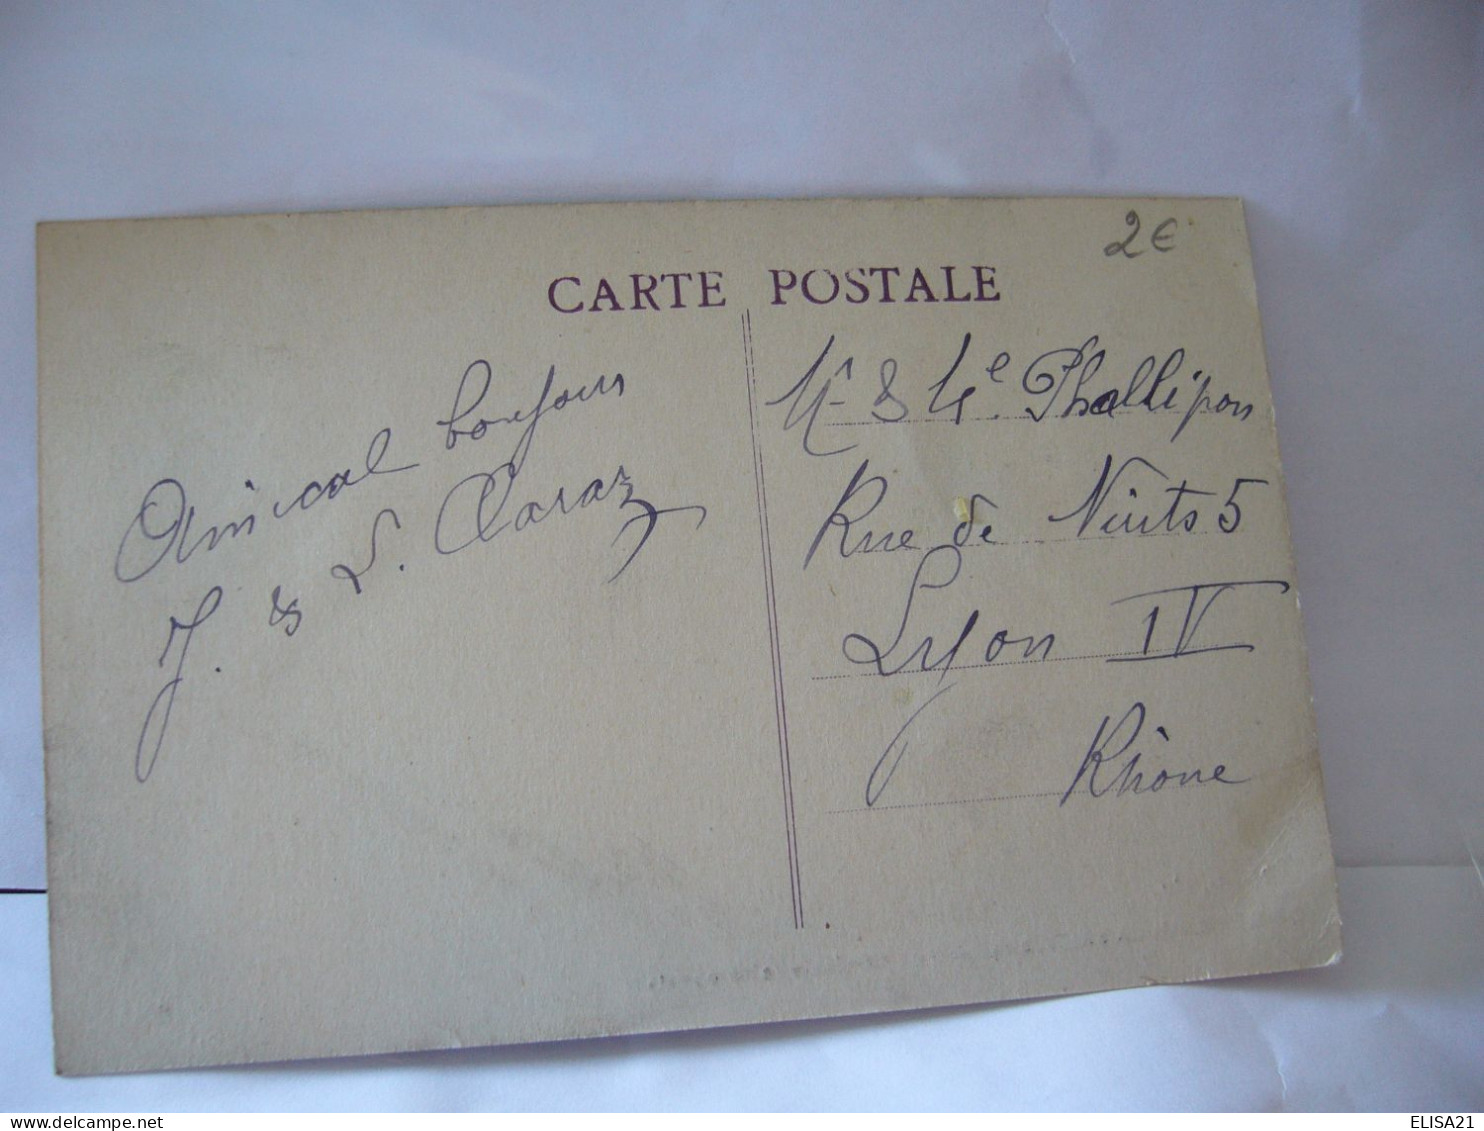 2€
CARTE POSTALE
Amical bonjour
J. & L. Caraz
Mr & Me. Phallipon
Rue de Nuits 5
Lyon IV
Rhône
ELISA21